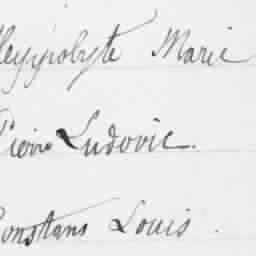 Heyppolyte Marie
Pierre Ludovic.
Constans Louis.